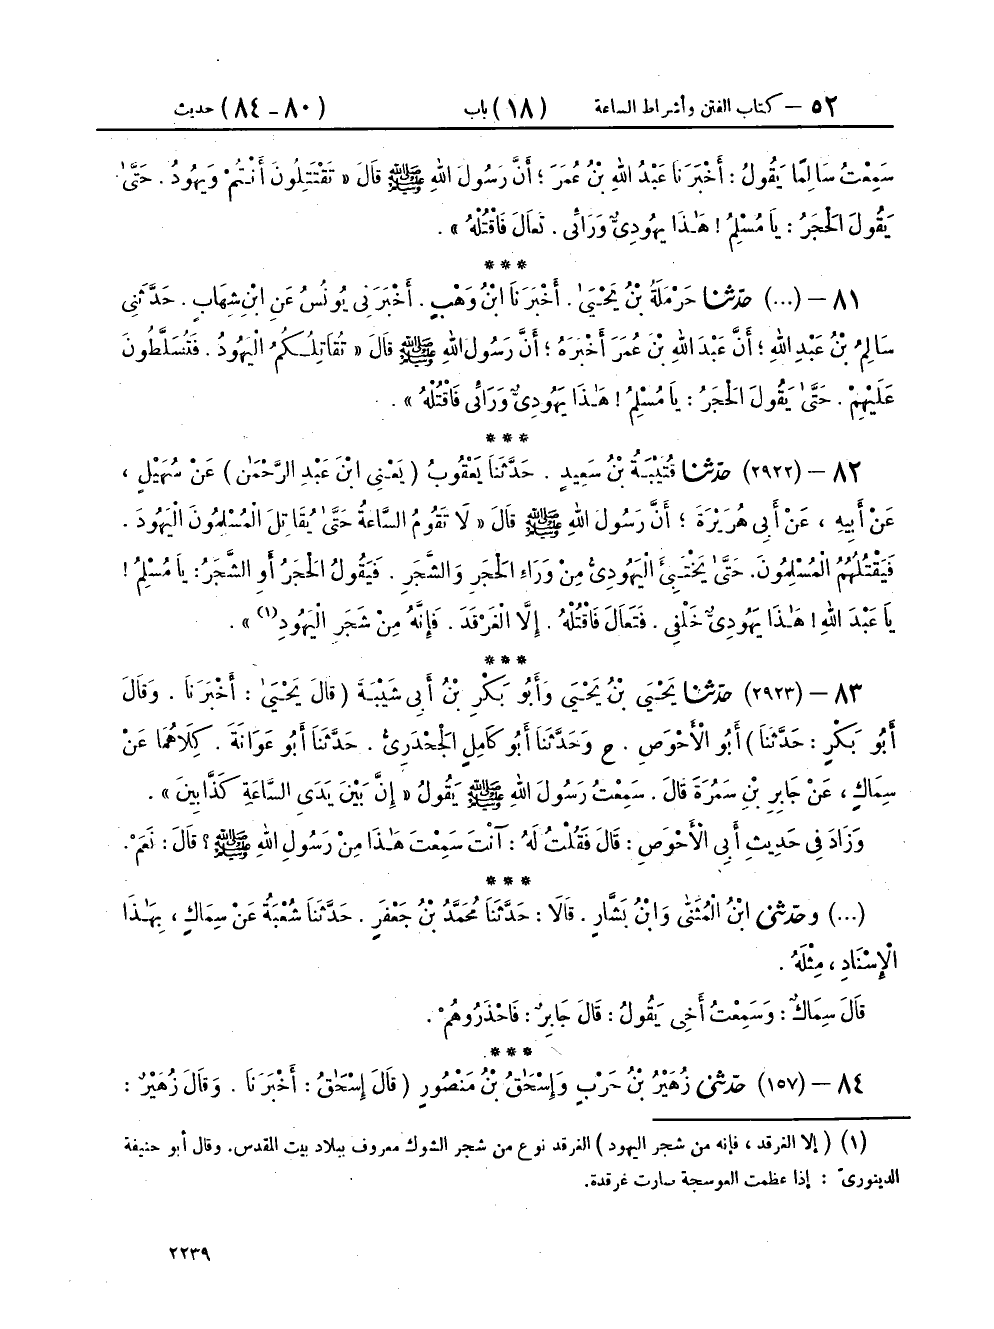 ٥٢ – كتاب الفتن وأشراط الساعة (١٨) باب (٨٠ – ٨٤) حديث
سَمِعْتُ سَالِمًا يَقُولُ : أَخْبَرَنَا عَبْدُ اللهِ بْنُ عُمَرَ ؛ أَنَّ رَسُولَ اللهِ ﷺ قَالَ « تَقْتَتِلُونَ أَنْتُمْ وَيَهُودُ . حَتَّىٰ
يَقُولَ الْحَجَرُ : يَا مُسْلِمُ ! هَـٰذَا يَهُودِيٌّ وَرَائِى . تَعَالَ فَاقْتُلْهُ » .
***
٨١ – (...) حَدَّثَنَا حَرْمَلَةُ بْنُ يَحْيَىٰ . أَخْبَرَنَا ابْنُ وَهْبٍ . أَخْبَرَنِى يُونُسُ عَنِ ابْنِ شِهَابٍ . حَدَّثَنِى
سَالِمُ بْنُ عَبْدِ اللهِ ؛ أَنَّ عَبْدَ اللهِ بْنَ عُمَرَ أَخْبَرَهُ ؛ أَنَّ رَسُولَ اللهِ ﷺ قَالَ « تُقَاتِلُـكُمُ الْيَهُودُ . فَتُسَلَّطُونَ
عَلَيْهِمْ . حَتَّىٰ يَقُولَ الْحَجَرُ : يَا مُسْلِمُ ! هَـٰذَا يَهُودِىٌّ وَرَائِى فَاقْتُلْهُ » .
***
٨٢ – (٢٩٢٢) حَدَّثَنَا قُتَيْبَةُ بْنُ سَعِيدٍ . حَدَّثَنَا يَعْقُوبُ ( يَعْنِى ابْنَ عَبْدِ الرَّحْمَـٰنِ ) عَنْ سُهَيْلٍ ،
عَنْ أَبِيهِ ، عَنْ أَبِى هُرَيْرَةَ ؛ أَنَّ رَسُولَ اللهِ ﷺ قَالَ « لَا تَقُومُ السَّاعَةُ حَتَّىٰ يُقَاتِلَ الْمُسْلِمُونَ الْيَهُودَ .
فَيَقْتُلُهُمُ الْمُسْلِمُونَ. حَتَّىٰ يَخْتَبِىَٔ الْيَهُودِىُّ مِنْ وَرَاءِ الْحَجَرِ وَالشَّجَرِ . فَيَقُولُ الْحَجَرُ أَوِ الشَّجَرُ: يَا مُسْلِمُ !
يَا عَبْدَ اللهِ ! هَـٰذَا يَهُودِىٌّ خَلْفِى . فَتَعَالَ فَاقْتُلْهُ . إِلَّا الْغَرْقَدَ . فَإِنَّهُ مِنْ شَجَرِ الْيَهُودِ (١) » .
***
٨٣ – (٢٩٢٣) حَدَّثَنَا يَحْيَى بْنُ يَحْيَى وَأَبُو بَكْرِ بْنُ أَبِى شَيْبَةَ ( قَالَ يَحْيَىٰ : أَخْبَرَنَا . وَقَالَ
أَبُو بَكْرٍ : حَدَّثَنَا ) أَبُو الْأَحْوَصِ . ح وَحَدَّثَنَا أَبُو كَامِلٍ الْجَحْدَرِىُّ . حَدَّثَنَا أَبُو عَوَانَةَ . كِلَاهُمَا عَنْ
سِمَاكٍ ، عَنْ جَابِرِ بْنِ سَمُرَةَ قَالَ . سَمِعْتُ رَسُولَ اللهِ ﷺ يَقُولُ « إِنَّ بَيْنَ يَدَىِ السَّاعَةِ كَذَّابِينَ » .
وَزَادَ فِى حَدِيثِ أَبِى الْأَحْوَصِ : قَالَ فَقُلْتُ لَهُ : آنْتَ سَمِعْتَ هَـٰذَا مِنْ رَسُولِ اللهِ ﷺ ؟ قَالَ : نَعَمْ.
***
(...) وحَدَّثَنِى ابْنُ الْمُثَنَّى وَابْنُ بَشَّارٍ . قَالَا : حَدَّثَنَا مُحَمَّدُ بْنُ جَعْفَرٍ . حَدَّثَنَا شُعْبَةُ عَنْ سِمَاكٍ ، بِهَـٰذَا
الْإِسْنَادِ ، مِثْلَهُ .
قَالَ سِمَاكٌ : وَسَمِعْتُ أَخِى يَقُولُ : قَالَ جَابِرٌ : فَاحْذَرُوهُمْ .
***
٨٤ – (١٥٧) حَدَّثَنِى زُهَيْرُ بْنُ حَرْبٍ وَإِسْحَـٰقُ بْنُ مَنْصُورٍ ( قَالَ إِسْحَـٰقُ : أَخْبَرَنَا . وَقَالَ زُهَيْرٌ :
(١) ( إلا الغرقد ، فإنه من شجر اليهود ) الغرقد نوع من شجر الشوك معروف ببلاد بيت المقدس. وقال أبو حنيفة
الدينورىّ : إذا عظمت العوسجة صارت غرقدة.
٢٢٣٩